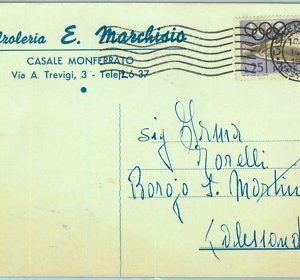 lzoleria E. Marchisio
CASALE MONFERRATO
Via A. Trevigi, 3 - Telef. 26-37
25
Sig Irma
Morelli
Borgo S. Martin
(alessand